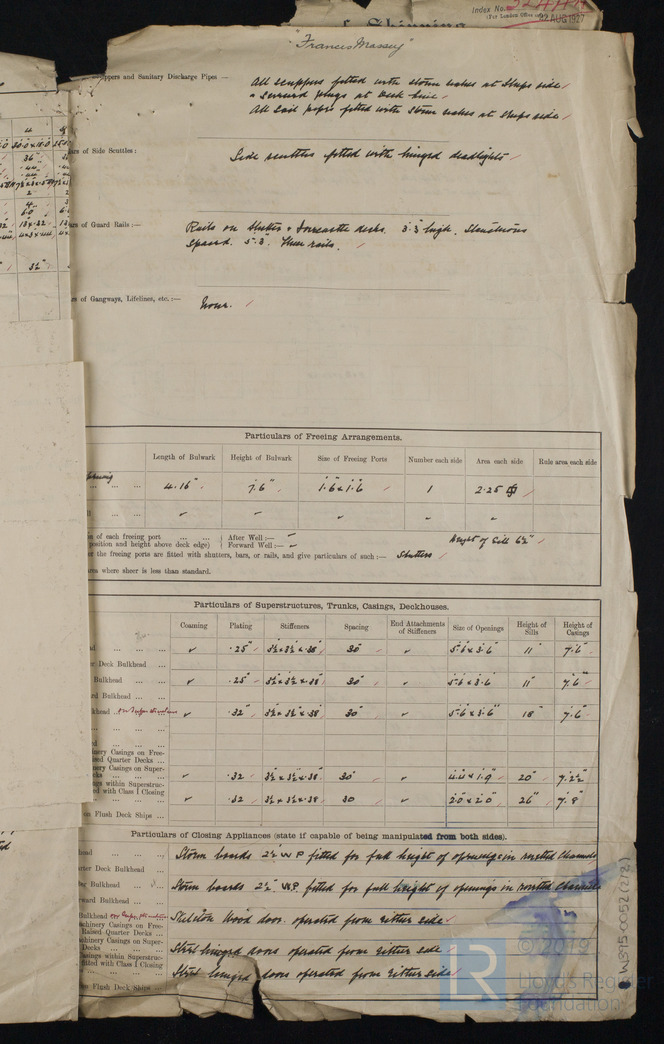 Index No. 
(For London Office only)
12 AUG 1927
of Shipping
"Francis Massey"
uppers and Sanitary Discharge Pipes —
All scuppers fitted with storm valves at Ships side
All Soil pipes fitted with Storm valves at Ships side
ars of Side Scuttles :
Side scuttles fitted with hinged deadlights
ars of Guard Rails :—
Rails on decks. 3'.3" high. Stanchions
Spaced. 5'.3". Three rails.
es of Gangways, Lifelines, etc. :—
None.
Particulars of Freeing Arrangements.
Length of Bulwark Height of Bulwark Size of Freeing Ports Number each side Area each side Rule area each side
4.16" 7.6" 1.6 x 1.6 1 2.25
on of each freeing port ... ... After Well :—
position and height above deck edge) Forward Well :—
Height of Sill 6½"
er the freeing ports are fitted with shutters, bars, or rails, and give particulars of such :— Shutters
area where sheer is less than standard.
Particulars of Superstructures, Trunks, Casings, Deckhouses.
Coaming Plating Stiffeners Spacing End Attachments of Stiffeners Size of Openings Height of Sills Height of Casings
.25" 3½ x 3½ x .38 30" 5.6 x 3.6 11" 7.6"
er Deck Bulkhead ...
Bulkhead ... ... .25" 3½ x 3½ x .38 30" 5.6 x 3.6 11" 7.6"
rd Bulkhead ... ...
khead .32" 3½ x 3½ x .38 30" 5'.6 x 3.6" 18" 7.6"
inery Casings on Free-
ised Quarter Decks ...
nery Casings on Super-
cks ... .32 3½ x 3½ x .38 30" 4.4 x 1.9 20" 7.2½"
ngs within Superstruc-
ed with Class I Closing .32 3½ x 3½ x .38 30 2.0 x 2.0 26" 7.8"
on Flush Deck Ships ...
Particulars of Closing Appliances (state if capable of being manipulated from both sides).
head Storm boards 2½" W P fitted for full height of openings in riveted Channels
arter Deck Bulkhead ...
Bulkhead Storm boards 2½" W.P. fitted for full height of openings in riveted Channels
rward Bulkhead ...
Bulkhead Wood doors operated from either side
chinery Casings on Free-
Raised Quarter Decks ...
chinery Casings on Super-
Decks ... Steel hinged doors operated from either side
asings within Superstruc-
fitted with Class I Closing Steel hinged doors operated from either side
on Flush Deck Ships ...
LR
© 2019
Lloyd's Register
Foundation
W315-0052 (2/2)